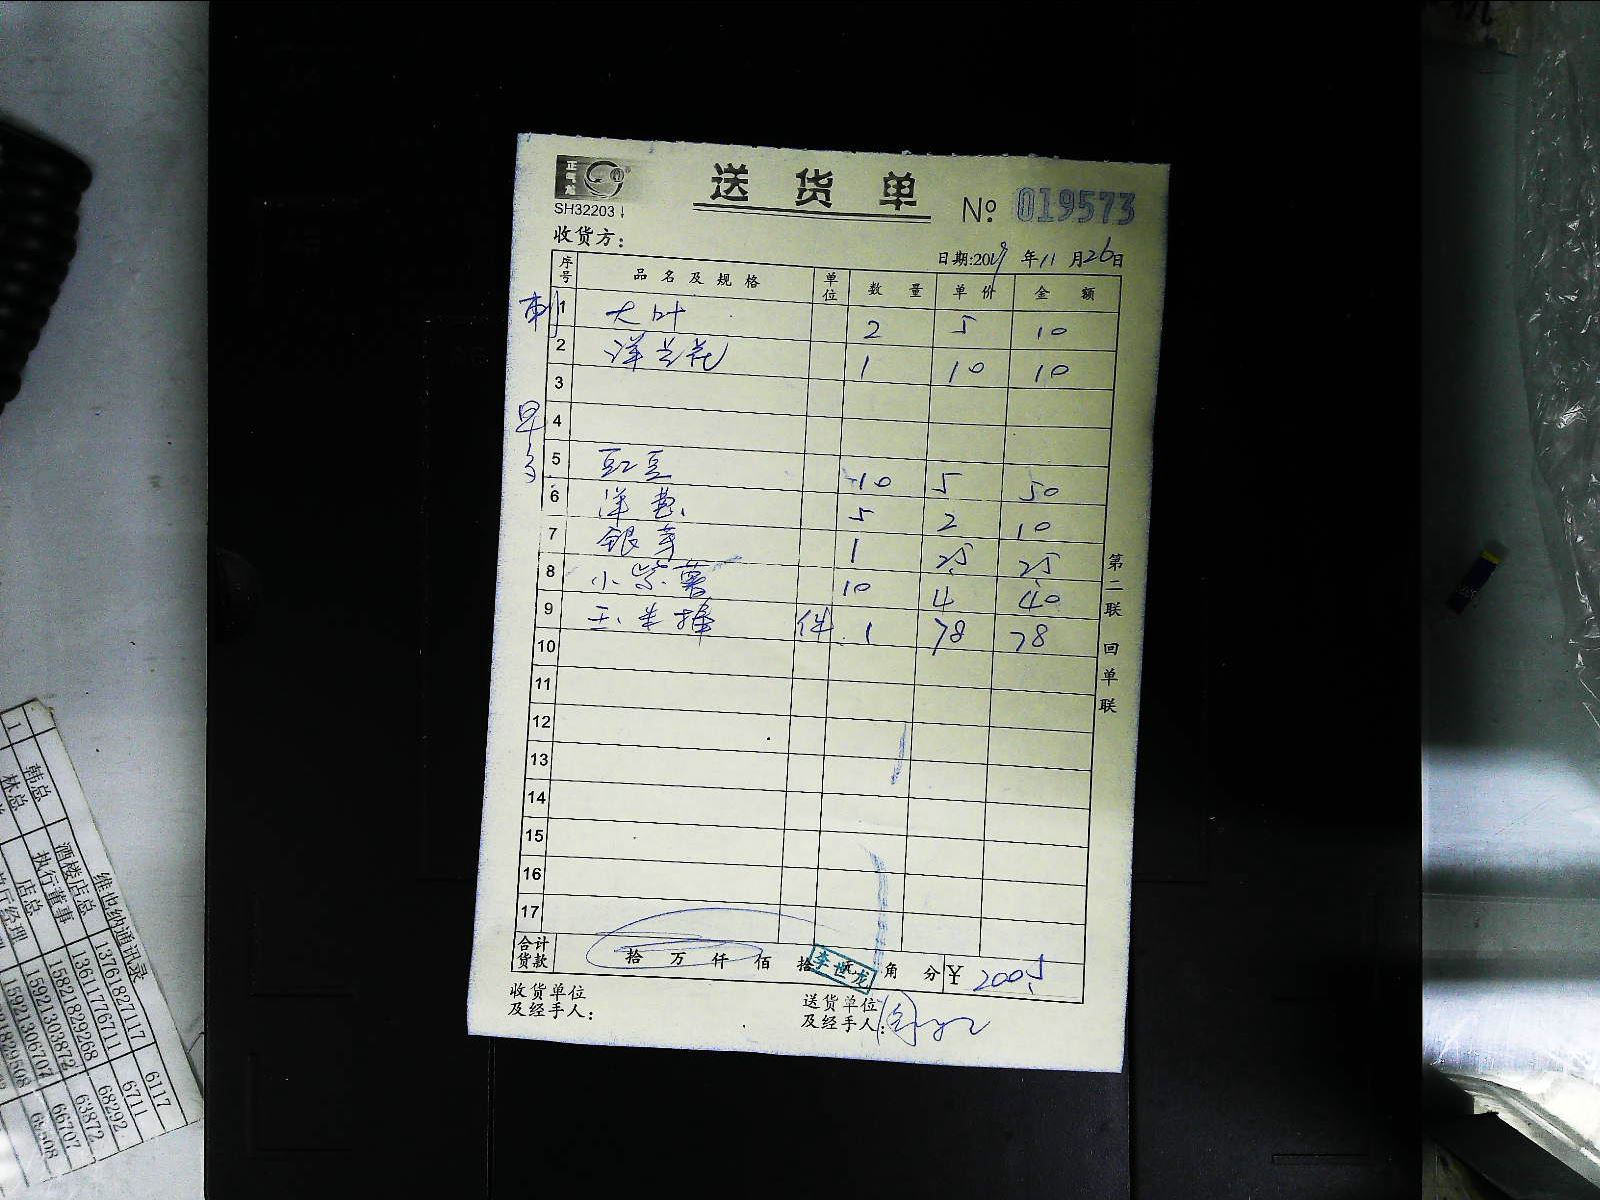 正气龙
SH32203
送货单
№ 019573
收货方：
日期:2019年11月26日
序号 品名及规格 单位 数量 单价 金额
1 大叶 2 5 10
2 洋兰花 1 10 10
3
4
5 豇豆 10 5 50
6 洋葱 5 2 10
7 银芽 1 2.5 2.5
8 小紫薯 10 4 40
9 玉米棒 件 1 78 78
10
11
12
13
14
15
16
17
合计货款 拾 万 仟 佰 拾 元 角 分 ￥ 200.5
李世龙
收货单位及经手人：
送货单位及经手人：
第二联 回单联
维也纳通讯录
1 韩总 酒楼店总 13761827117 6117
林总 执行董事 13611776711 6711
店总 15821829268 68292
15921303872 63872
15921306707 66707